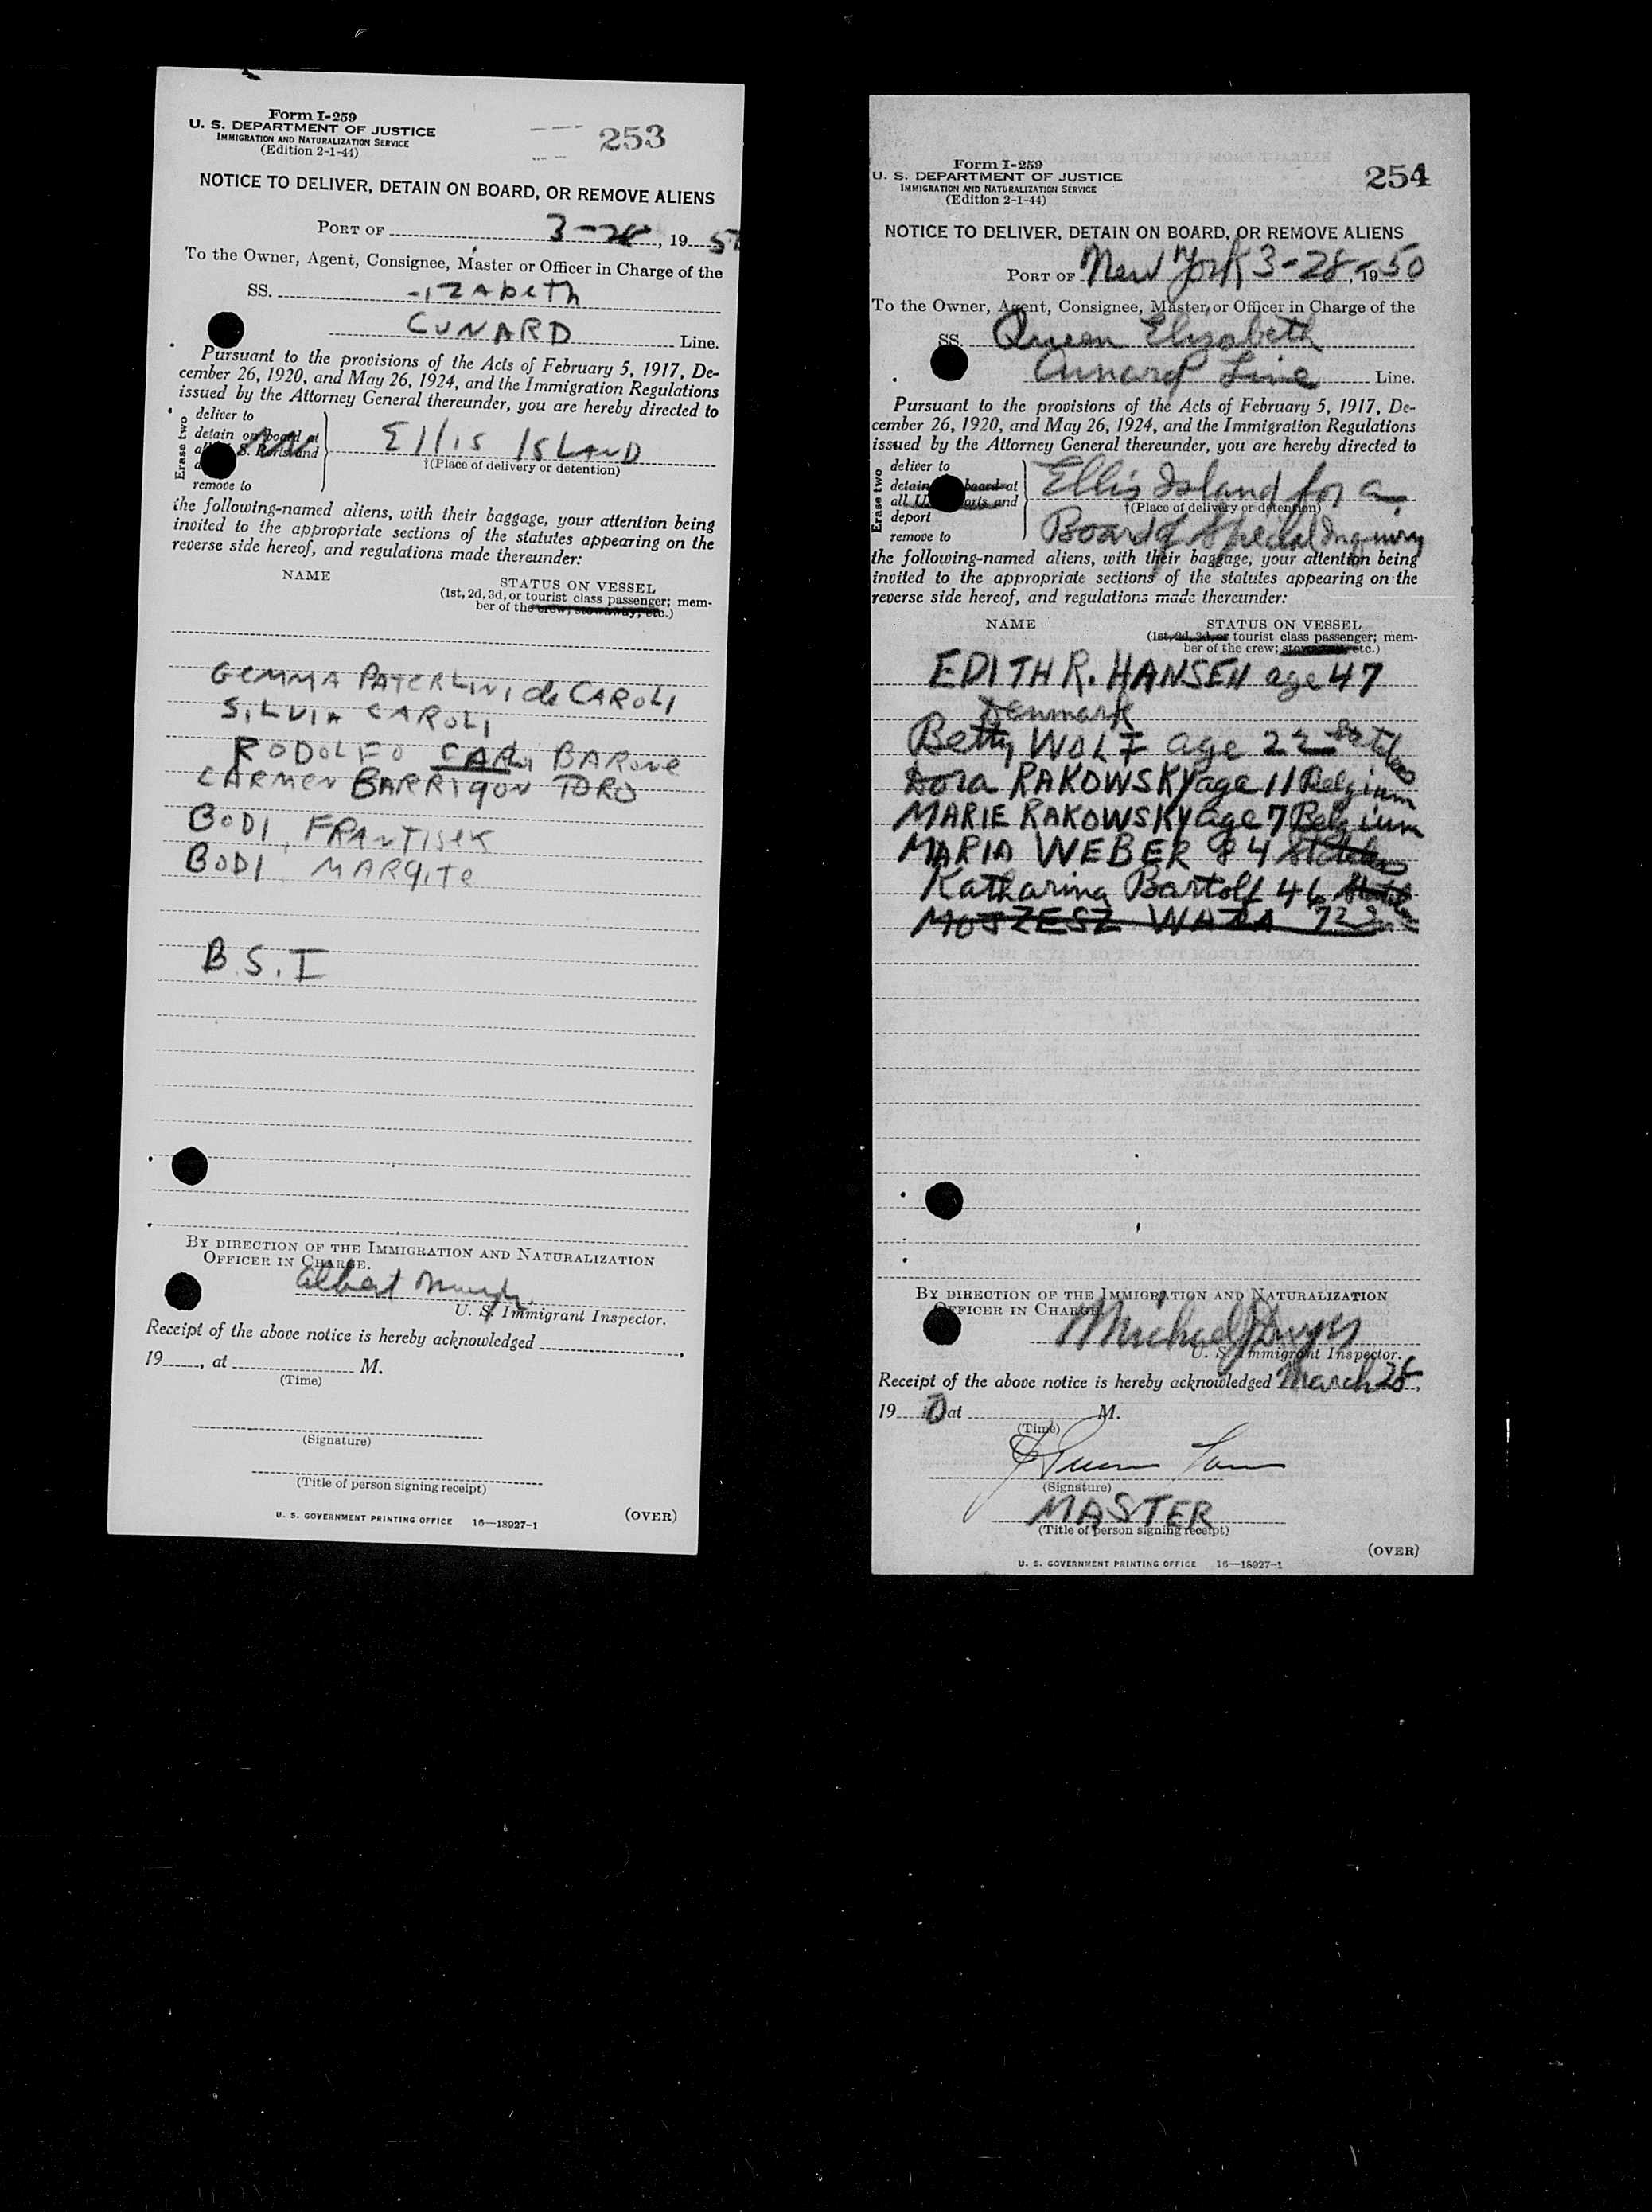 Form I-259
U. S. DEPARTMENT OF JUSTICE
IMMIGRATION AND NATURALIZATION SERVICE
(Edition 2-1-44)
253
NOTICE TO DELIVER, DETAIN ON BOARD, OR REMOVE ALIENS
PORT OF 3-28, 19
To the Owner, Agent, Consignee, Master or Officer in Charge of the
SS. -izabeth
CUNARD Line.
Pursuant to the provisions of the Acts of February 5, 1917, De-
cember 26, 1920, and May 26, 1924, and the Immigration Regulations
issued by the Attorney General thereunder, you are hereby directed to
Erase two
deliver to
detain on board at
S. Ports and
remove to
Ellis Island
†(Place of delivery or detention)
the following-named aliens, with their baggage, your attention being
invited to the appropriate sections of the statutes appearing on the
reverse side hereof, and regulations made thereunder:
NAME
STATUS ON VESSEL
(1st, 2d, 3d, or tourist class passenger; mem-
ber of the crew; stowaway, etc.)
GEMMA PATERLINI de CAROLI
SILVIA CAROLI
RODOLFO BARONE
CARMEN BARRIGON TORO
BODI, FRANTISEK
BODI, MARGITE
B.S.I
BY DIRECTION OF THE IMMIGRATION AND NATURALIZATION
OFFICER IN CHARGE.
Albert
U. S. Immigrant Inspector.
Receipt of the above notice is hereby acknowledged
19, at M.
(Time)
(Signature)
(Title of person signing receipt)
U. S. GOVERNMENT PRINTING OFFICE 16—18927-1
(OVER)
Form I-259
U. S. DEPARTMENT OF JUSTICE
IMMIGRATION AND NATURALIZATION SERVICE
(Edition 2-1-44)
254
NOTICE TO DELIVER, DETAIN ON BOARD, OR REMOVE ALIENS
PORT OF New York 3-28-, 19 50
To the Owner, Agent, Consignee, Master or Officer in Charge of the
SS. Queen Elizabeth
Cunard Line Line.
Pursuant to the provisions of the Acts of February 5, 1917, De-
cember 26, 1920, and May 26, 1924, and the Immigration Regulations
issued by the Attorney General thereunder, you are hereby directed to
Erase two
deliver to
detain board at
all U. ports and
deport
remove to
Ellis Island for a
†(Place of delivery or detention)
Board of Special Inquiry
the following-named aliens, with their baggage, your attention being
invited to the appropriate sections of the statutes appearing on the
reverse side hereof, and regulations made thereunder:
NAME
STATUS ON VESSEL
(1st, 2d, 3d, or tourist class passenger; mem-
ber of the crew; etc.)
EDITH R. HANSEN age 47
Denmark
Betty WOLF age 22
Dora RAKOWSKY age 11 Belgium
MARIE RAKOWSKY age 7 Belgium
MARIA WEBER 84
Katharina Bartolf 46
MOJZESZ 72
BY DIRECTION OF THE IMMIGRATION AND NATURALIZATION
OFFICER IN CHARGE.
Michael J Dwyer
U. S. Immigrant Inspector.
Receipt of the above notice is hereby acknowledged March 28,
19 at M.
(Time)
(Signature)
MASTER
(Title of person signing receipt)
(OVER)
U. S. GOVERNMENT PRINTING OFFICE 16—18927-1